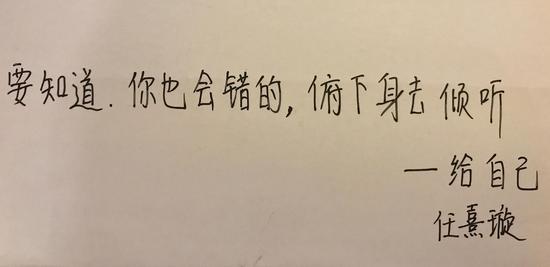 要知道.你也会错的,俯下身去倾听
一给自己
任熹璇